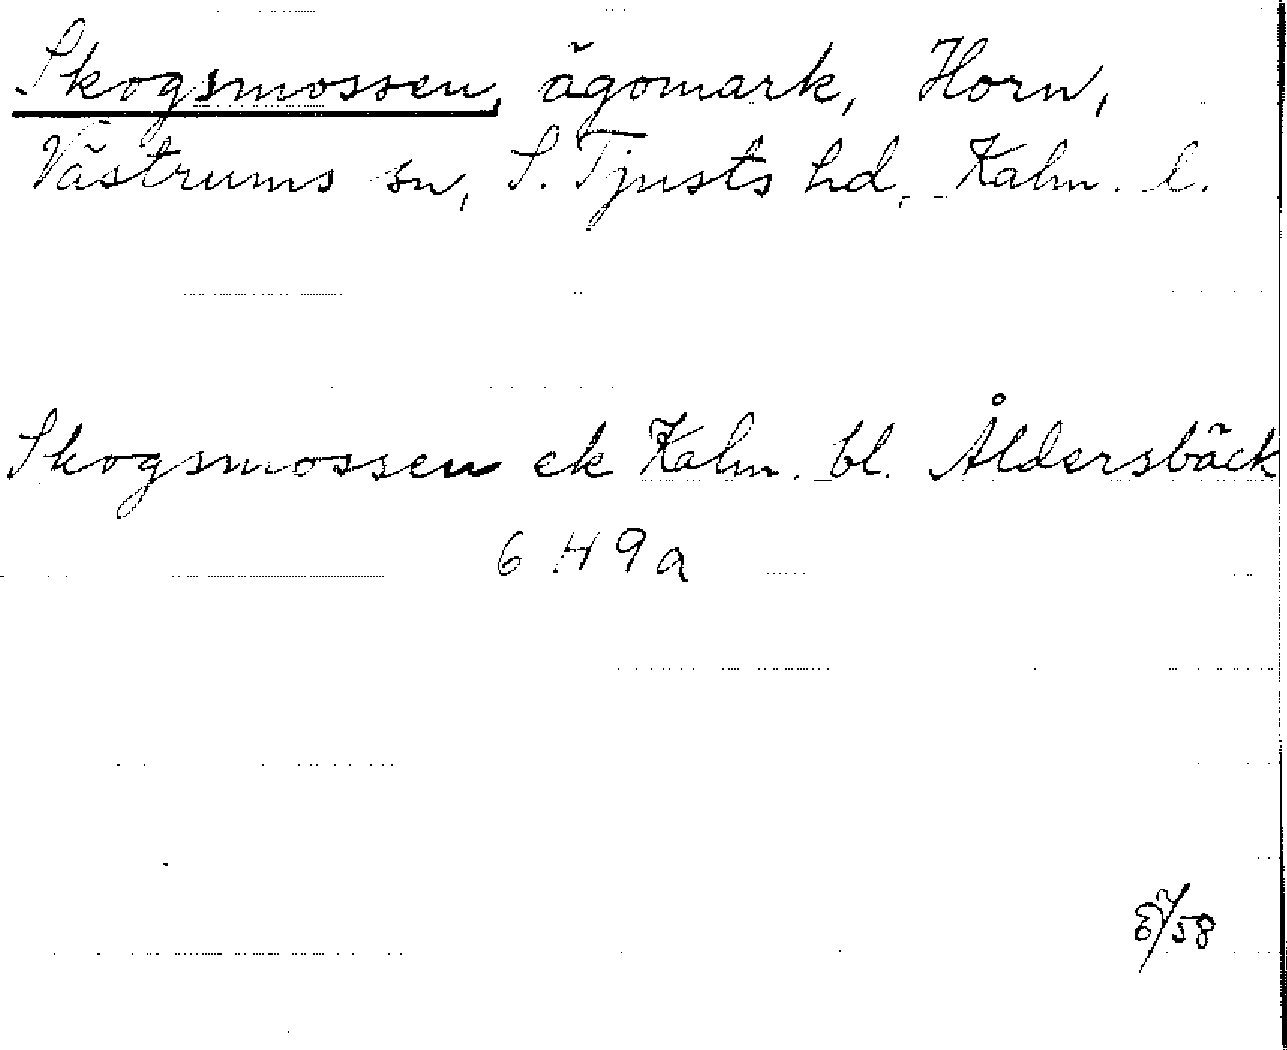 Skogsmossen, ägomark, Horn,
Västrums sn, S. Tjusts hd, Kalm. l.
Skogsmossen ek Kalm. bl. Åldersbäck
6 H 9 a
/58